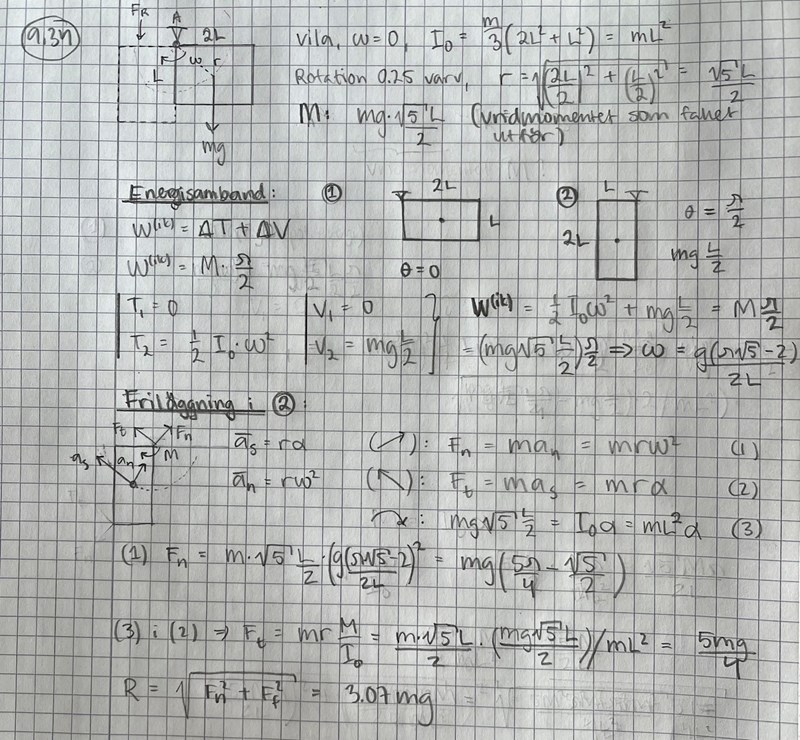 9.37
F_R
A
2L
L
ω
r
mg
vila, ω=0, I₀ = m/3 (2L² + L²) = mL²
Rotation 0.25 varv, r = √((2L/2)² + (L/2)²) = √5 L/2
M: mg·√5 L/2 (vridmomentet som taket utför)
Energisamband: ① 2L L ② L 2L
W^(ik) = ΔT + ΔV
W^(ik) = M·π/2
θ = 0
θ = π/2
mg L/2
T₁ = 0
T₂ = 1/2 I₀·ω²
V₁ = 0
V₂ = mg L/2
W^(ik) = 1/2 I₀ω² + mg L/2 = M π/2
= (mg√5 L/2) π/2 ⇒ ω = g(π√5-2)/2L
Friläggning i ②:
F_t F_n
a_s a_n M
a̅_s = rα
a̅_n = rω²
(↗): F_n = ma_n = mrω² (1)
(↖): F_t = ma_s = mrα (2)
↷: mg√5 L/2 = I₀α = mL²α (3)
(1) F_n = m·√5 L/2 · (g(π√5-2)/2L)² = mg(5π/4 - √5/2)
(3) i (2) ⇒ F_t = mr M/I₀ = m·√5 L/2 · (mg√5 L/2)/mL² = 5mg/4
R = √(F_n² + F_t²) = 3.07mg